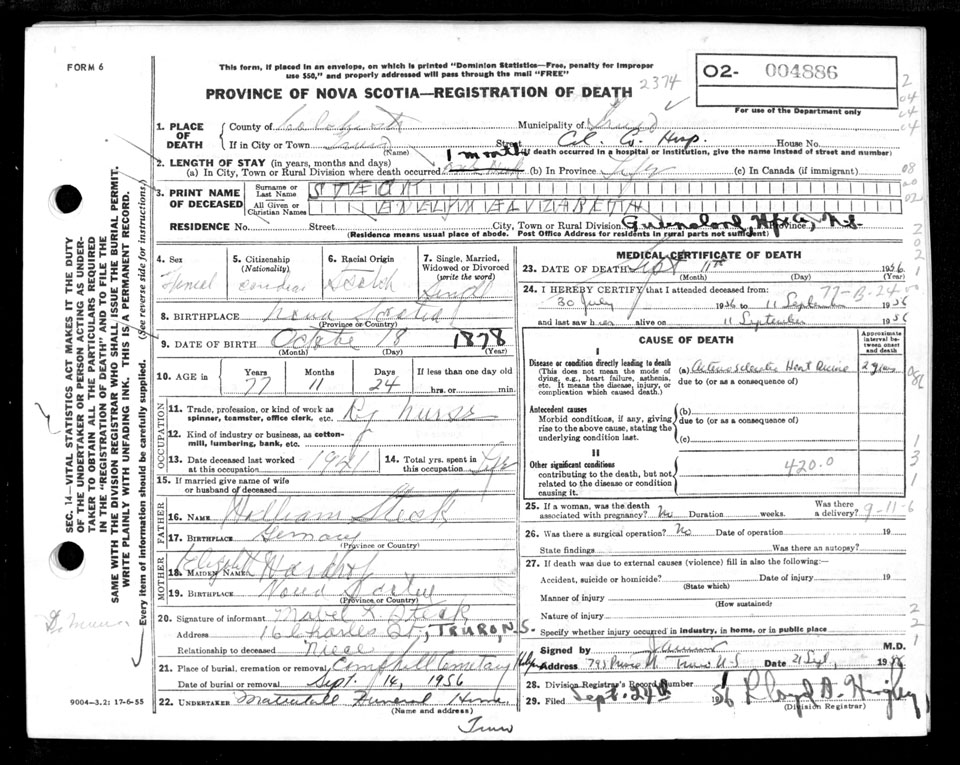 FORM 6
This form, if placed in an envelope, on which is printed "Dominion Statistics—Free, penalty for improper
use $50," and properly addressed will pass through the mail "FREE"
2374
O2- 004886
For use of the Department only
PROVINCE OF NOVA SCOTIA—REGISTRATION OF DEATH
1. PLACE OF DEATH
County of Colchester Municipality of Truro
If in City or Town Truro (Name) Street Col. Co. Hosp. House No.
(If death occurred in a hospital or institution, give the name instead of street and number)
2. LENGTH OF STAY (in years, months and days)
(a) In City, Town or Rural Division where death occurred 1 month (b) In Province Life (c) In Canada (if immigrant)
3. PRINT NAME OF DECEASED
Surname or Last Name
All Given or Christian Names
RESIDENCE No. Street City, Town or Rural Division Province
(Residence means usual place of abode. Post Office Address for residents in rural parts not sufficient)
4. Sex
5. Citizenship (Nationality)
6. Racial Origin
7. Single, Married, Widowed or Divorced (write the word)
8. BIRTHPLACE Nova Scotia
(Province or Country)
9. DATE OF BIRTH 18 1878
(Month) (Day) (Year)
10. AGE in Years 77 Months 11 Days 24 If less than one day old hrs. or min.
OCCUPATION
11. Trade, profession, or kind of work as spinner, teamster, office clerk, etc. nurse
12. Kind of industry or business, as cotton-mill, lumbering, bank, etc.
13. Date deceased last worked at this occupation 1941
14. Total yrs. spent in this occupation Life
15. If married give name of wife or husband of deceased
FATHER
16. NAME William
17. BIRTHPLACE Germany
(Province or Country)
MOTHER
18. MAIDEN NAME
19. BIRTHPLACE Nova Scotia
(Province or Country)
20. Signature of informant Mabel
Address 16 Charles St, TRURO, N.S.
Relationship to deceased Niece
21. Place of burial, cremation or removal, Cemetery
Date of burial or removal Sept. 14, 1956
22. UNDERTAKER Funeral Home
(Name and address)
Truro
9004-3.2: 17-6-55
MEDICAL CERTIFICATE OF DEATH
23. DATE OF DEATH Sept 11th 1956
(Month) (Day) (Year)
77-B-24
24. I HEREBY CERTIFY that I attended deceased from:
30 July 1956 to 11 September 1956
and last saw her alive on 11 September 1956
CAUSE OF DEATH
Approximate interval between onset and death
I
Disease or condition directly leading to death
(This does not mean the mode of dying, e.g., heart failure, asthenia, etc. It means the disease, injury, or complication which caused death.)
(a) Arteriosclerotic Heart Disease 2 years
due to (or as a consequence of)
Antecedent causes
Morbid conditions, if any, giving rise to the above cause, stating the underlying condition last.
(b)
due to (or as a consequence of)
(c)
II
Other significant conditions
contributing to the death, but not related to the disease or condition causing it.
420.0
25. If a woman, was the death associated with pregnancy? No Duration weeks. Was there a delivery?
9-11-6
26. Was there a surgical operation? No Date of operation 19
State findings Was there an autopsy?
27. If death was due to external causes (violence) fill in also the following:—
Accident, suicide or homicide? Date of injury 19
(State which)
Manner of injury
(How sustained)
Nature of injury
Specify whether injury occurred in industry, in home, or in public place
Signed by M.D.
Address Truro N-S Date 21 Sept, 1956
28. Division Registrar's Record Number
29. Filed Sept. 24th 1956 Lloyd
(Division Registrar)
SEC. 14—VITAL STATISTICS ACT MAKES IT THE DUTY
OF THE UNDERTAKER OR PERSON ACTING AS UNDER-
TAKER TO OBTAIN ALL THE PARTICULARS REQUIRED
IN THE "REGISTRATION OF DEATH" AND TO FILE THE
SAME WITH THE DIVISION REGISTRAR WHO SHALL ISSUE THE BURIAL PERMIT.
WRITE PLAINLY WITH UNFADING INK. THIS IS A PERMANENT RECORD.
Every item of information should be carefully supplied. (See reverse side for instructions)